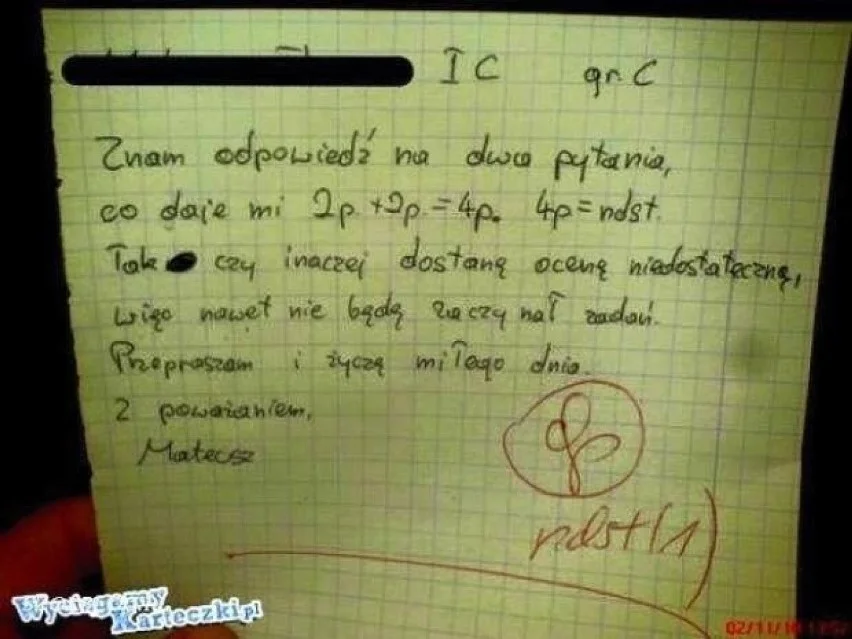 I C gr. C
Znam odpowiedź na dwa pytania,
co daje mi 2p. + 2p. = 4p. 4p = ndst.
Tak czy inaczej dostanę ocenę niedostateczną,
więc nawet nie będę zaczynał zadań.
Przepraszam i życzę miłego dnia.
Z poważaniem,
Mateusz
ndst(1)
Wyciągamy
Karteczki.pl
02/11/10